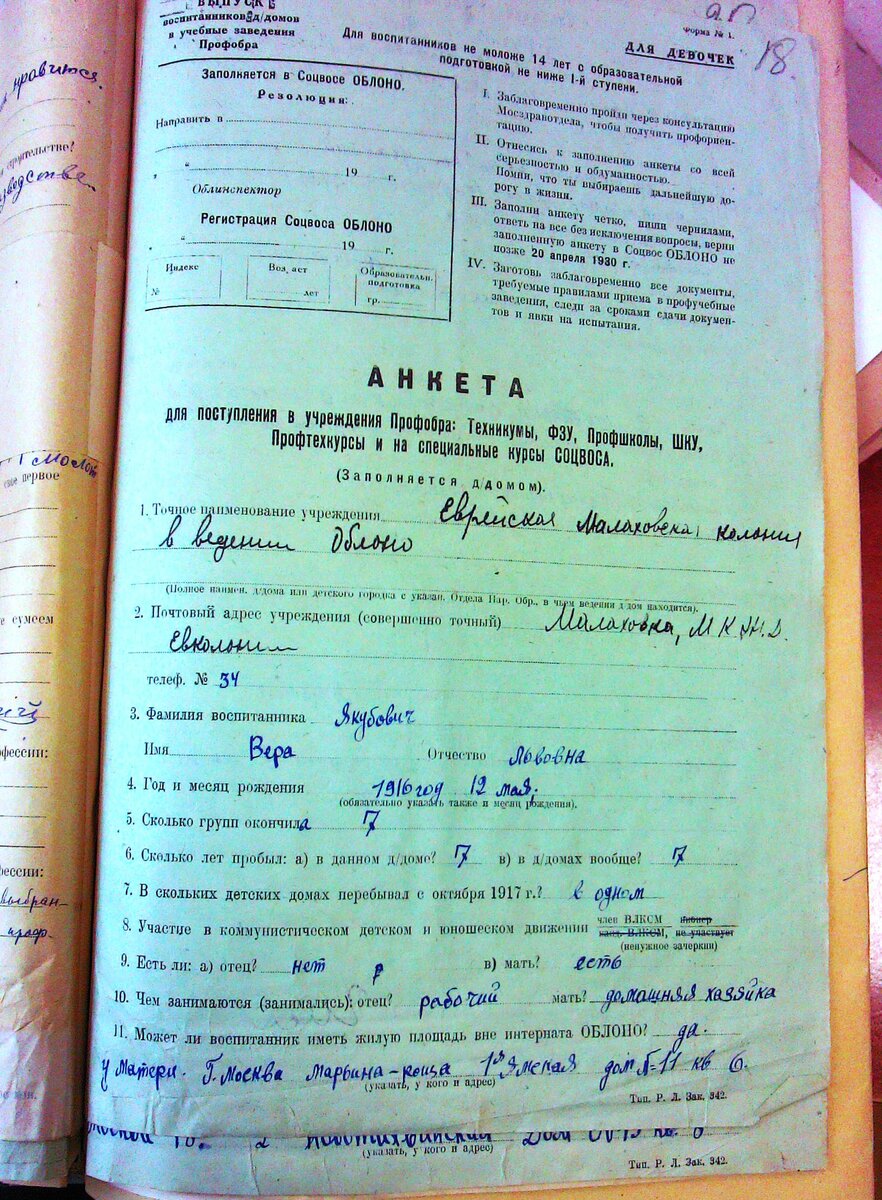 ВЫПУСК
воспитанников д/домов
в учебные заведения
Профобра
Форма № 1.
ДЛЯ ДЕВОЧЕК
18.
Для воспитанников не моложе 14 лет с образовательной
подготовкой не ниже I-й ступени.
Заполняется в Соцвосе ОБЛОНО.
Резолюция:
Направить в
" 19 г.
Облинспектор
Регистрация Соцвоса ОБЛОНО
" 19 г.
Индекс
№
Возраст
лет
Образовательн.
подготовка
гр.
I. Заблаговременно пройди через консультацию
Мосздравотдела, чтобы получить профориен-
тацию.
II. Отнесись к заполнению анкеты со всей
серьезностью и обдуманностью.
Помни, что ты выбираешь дальнейшую до-
рогу в жизни.
III. Заполни анкету четко, пиши чернилами,
ответь на все без исключения вопросы, верни
заполненную анкету в Соцвос ОБЛОНО не
позже 20 апреля 1930 г.
IV. Заготовь заблаговременно все документы,
требуемые правилами приема в профучебные
заведения, следи за сроками сдачи докумен-
тов и явки на испытания.
АНКЕТА
для поступления в учреждения Профобра: Техникумы, ФЗУ, Профшколы, ШКУ,
Профтехкурсы и на специальные курсы СОЦВОСА.
(Заполняется д/домом).
1. Точное наименование учреждения Еврейская Малаховская колония
в ведении Облоно
(Полное наимен. д/дома или детского городка с указан. Отдела Нар. Обр., в чьем ведении д/дом находится).
2. Почтовый адрес учреждения (совершенно точный) Малаховка, М.К.Ж.Д.
Евколония
телеф. № 34
3. Фамилия воспитанника Якубович
Имя Вера Отчество Львовна
4. Год и месяц рождения 1916 год 12 мая.
(обязательно указать также и месяц рождения).
5. Сколько групп окончила 7
6. Сколько лет пробыл: а) в данном д/доме? 7 в) в д/домах вообще? 7
7. В скольких детских домах перебывал с октября 1917 г.? в одном
8. Участие в коммунистическом детском и юношеском движении член ВЛКСМ пионер
канд. ВЛКСМ, не участвует
(ненужное зачеркни)
9. Есть ли: а) отец? нет в) мать? есть
10. Чем занимаются (занимались): отец? рабочий мать? домашняя хазяйка
11. Может ли воспитанник иметь жилую площадь вне интерната ОБЛОНО? да.
у матери. Г. Москва Марьина-роща 1я Ямская дом №11 кв 6.
(указать, у кого и адрес)
Тип. Р. Л. Зак. 342.
(указать, у кого и адрес)
Тип. Р. Л. Зак. 342.